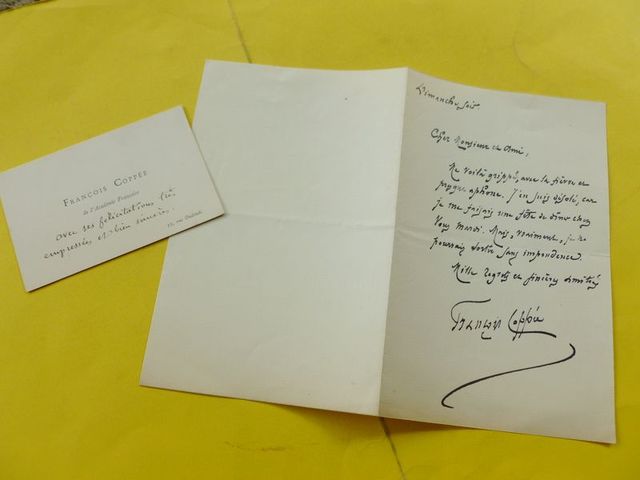 FRANÇOIS COPPÉE
de l'Académie Française
avec ses félicitations très
empressées et bien sincères.
12, rue Oudinot
Dimanche soir
Cher Monsieur et Ami,
Me voilà grippé, avec la fièvre et
presque aphone. J'en suis désolé, car
je me faisais une fête de dîner chez
vous mardi. Mais, vraiment, je ne
pourrais sortir sans imprudence.
Mille regrets et sincères amitiés
François Coppée